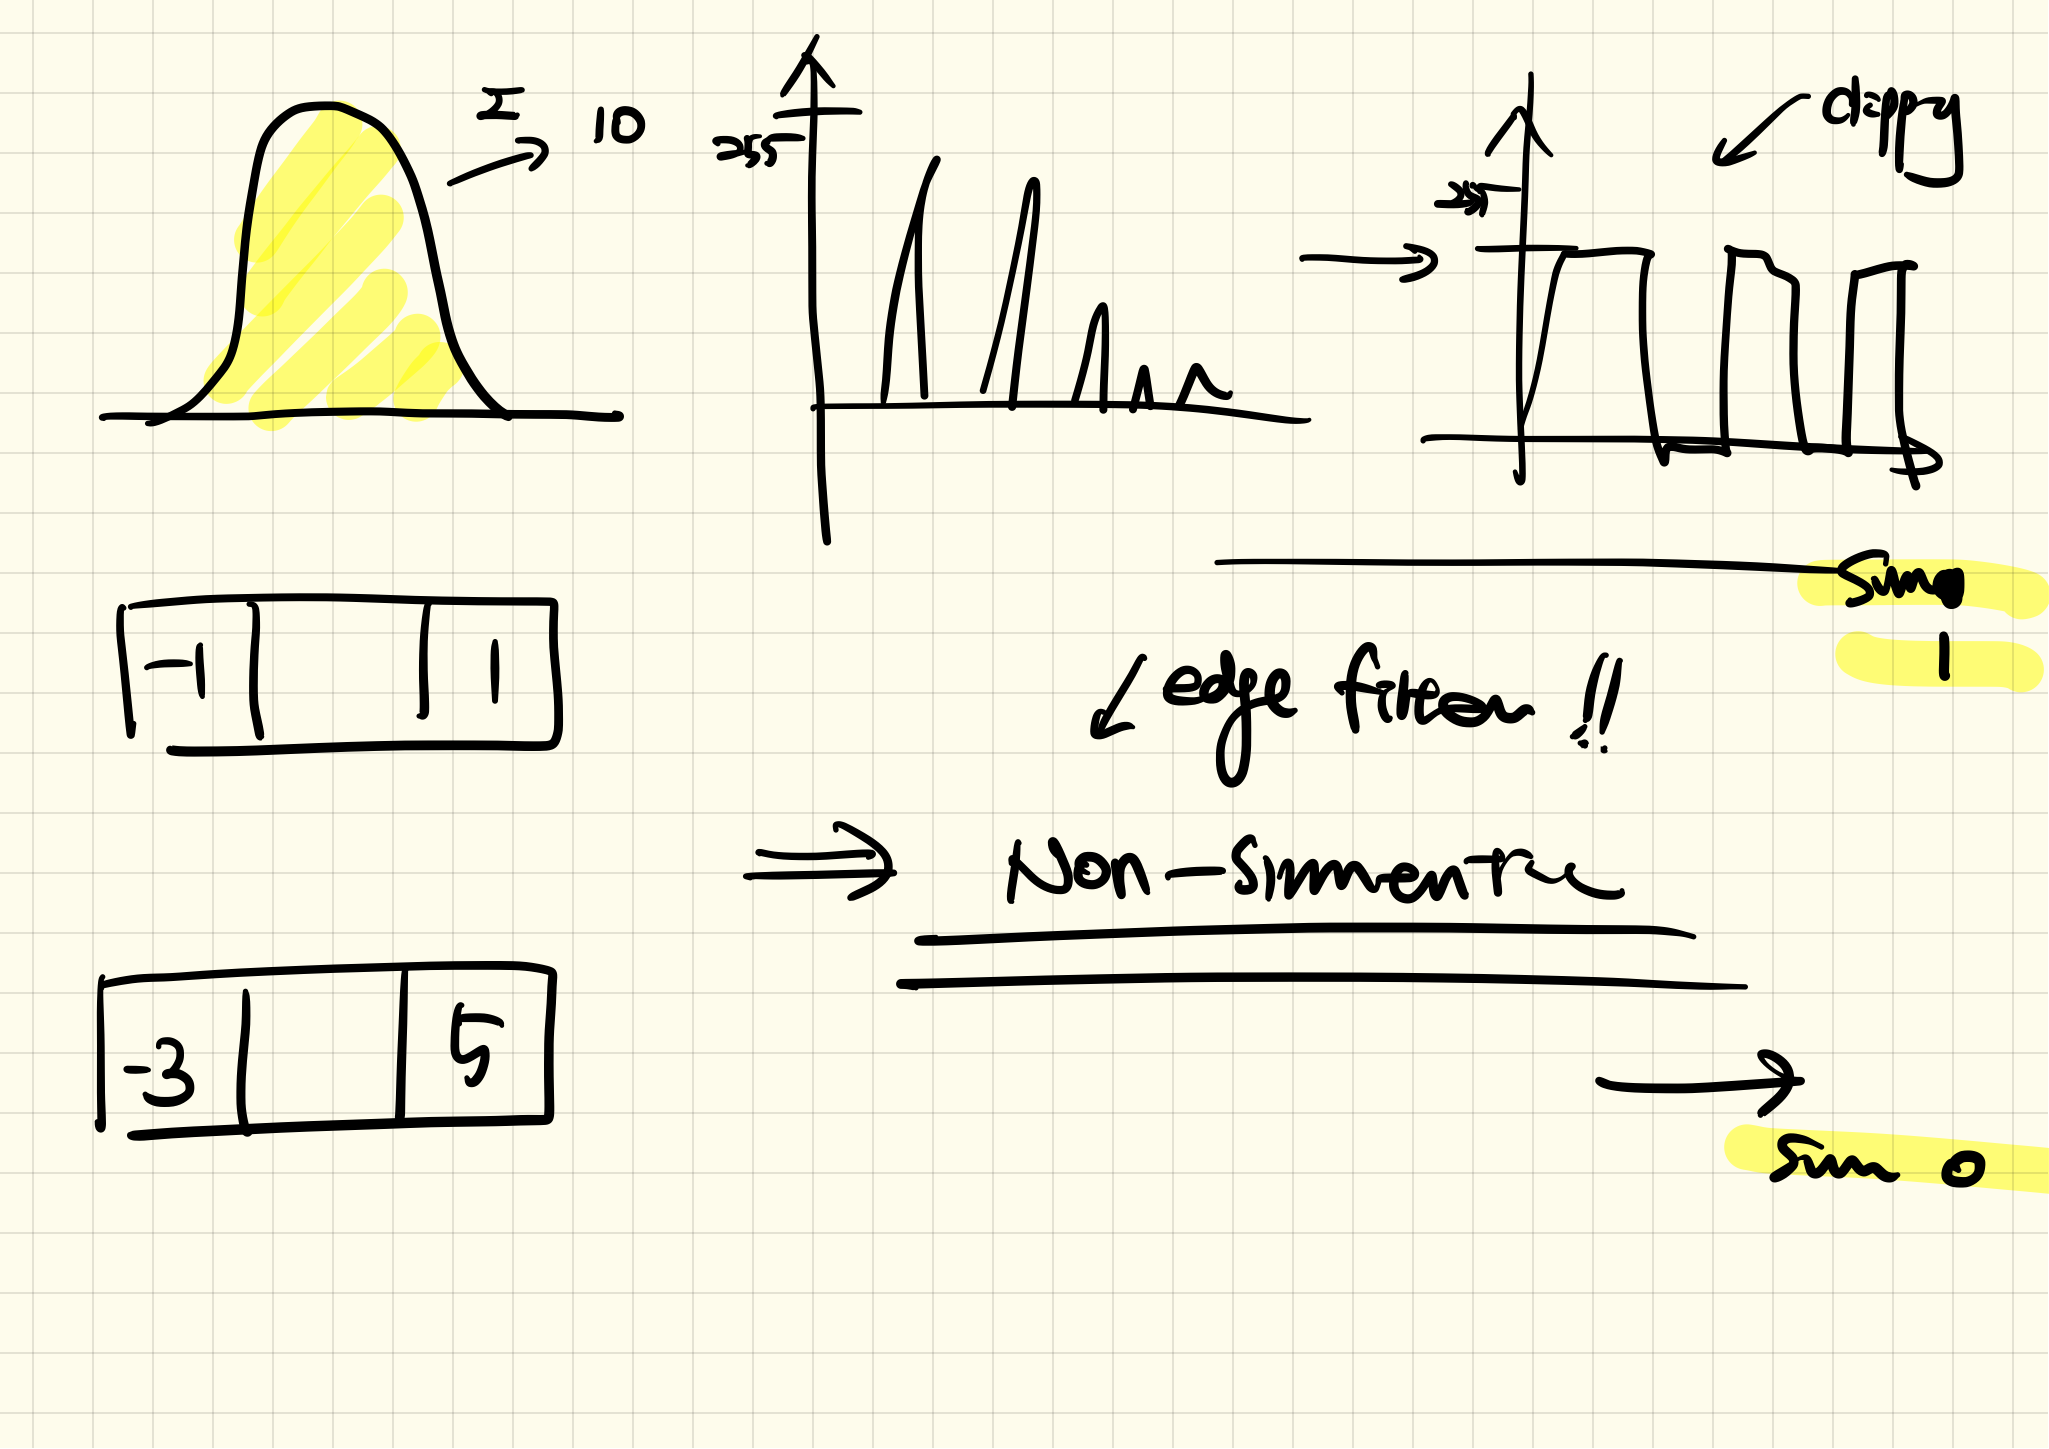 Σ
10
255
255
clippy
Sum
1
-1 1
edge filter !!
Non-Simmetric
-3 5
Sum 0